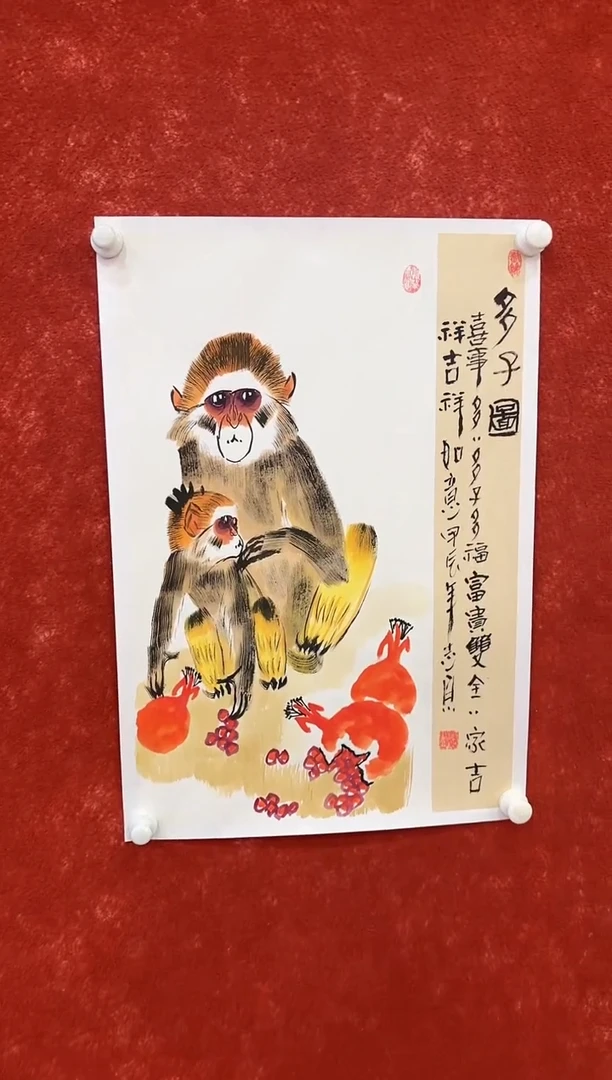 多子圖
喜事多〻多子多福富貴雙全〻家吉
祥吉祥如意甲辰年志